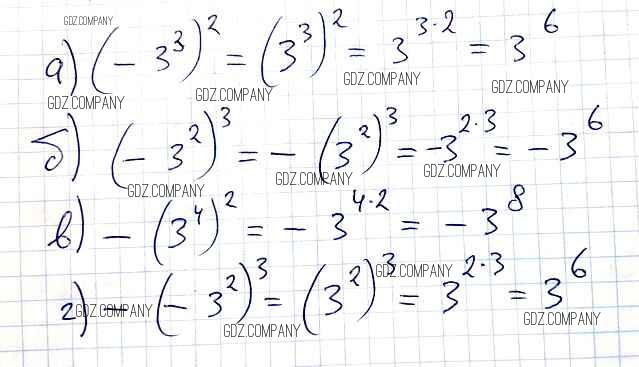 GDZ.COMPANY
а) (-3³)² = (3³)² = 3^(3·2) = 3⁶
GDZ.COMPANY GDZ.COMPANY GDZ.COMPANY GDZ.COMPANY
б) (-3²)³ = -(3²)³ = -3^(2·3) = -3⁶
GDZ.COMPANY GDZ.COMPANY GDZ.COMPANY
в) -(3⁴)² = -3^(4·2) = -3⁸
г) -(-3²)³ = (3²)³ = 3^(2·3) = 3⁶
GDZ.COMPANY GDZ.COMPANY GDZ.COMPANY GDZ.COMPANY